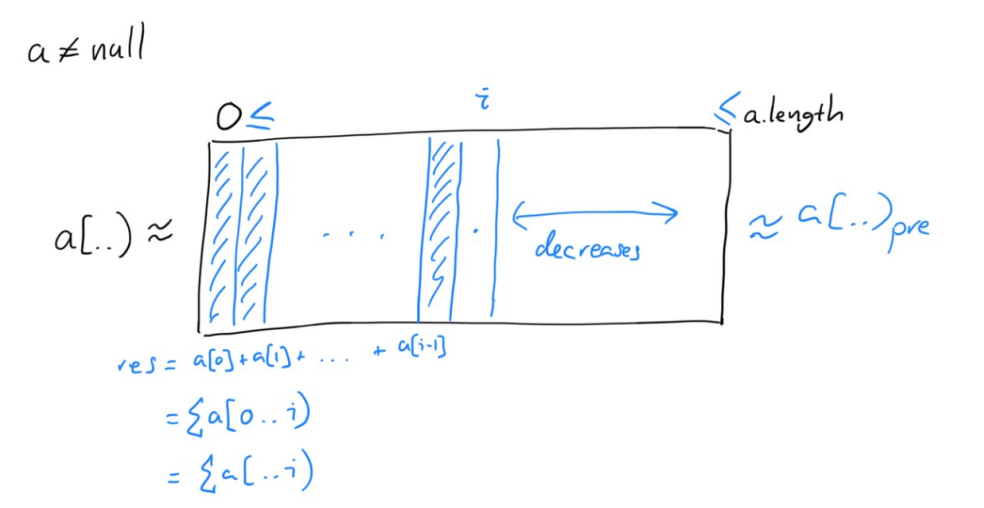 a ≠ null
0 ≤ i ≤ a.length
a[..) ≈ ... . decreases ≈ a[..)pre
res = a[0]+a[1]+ ... + a[i-1]
= Σa[0..i)
= Σa[..i)